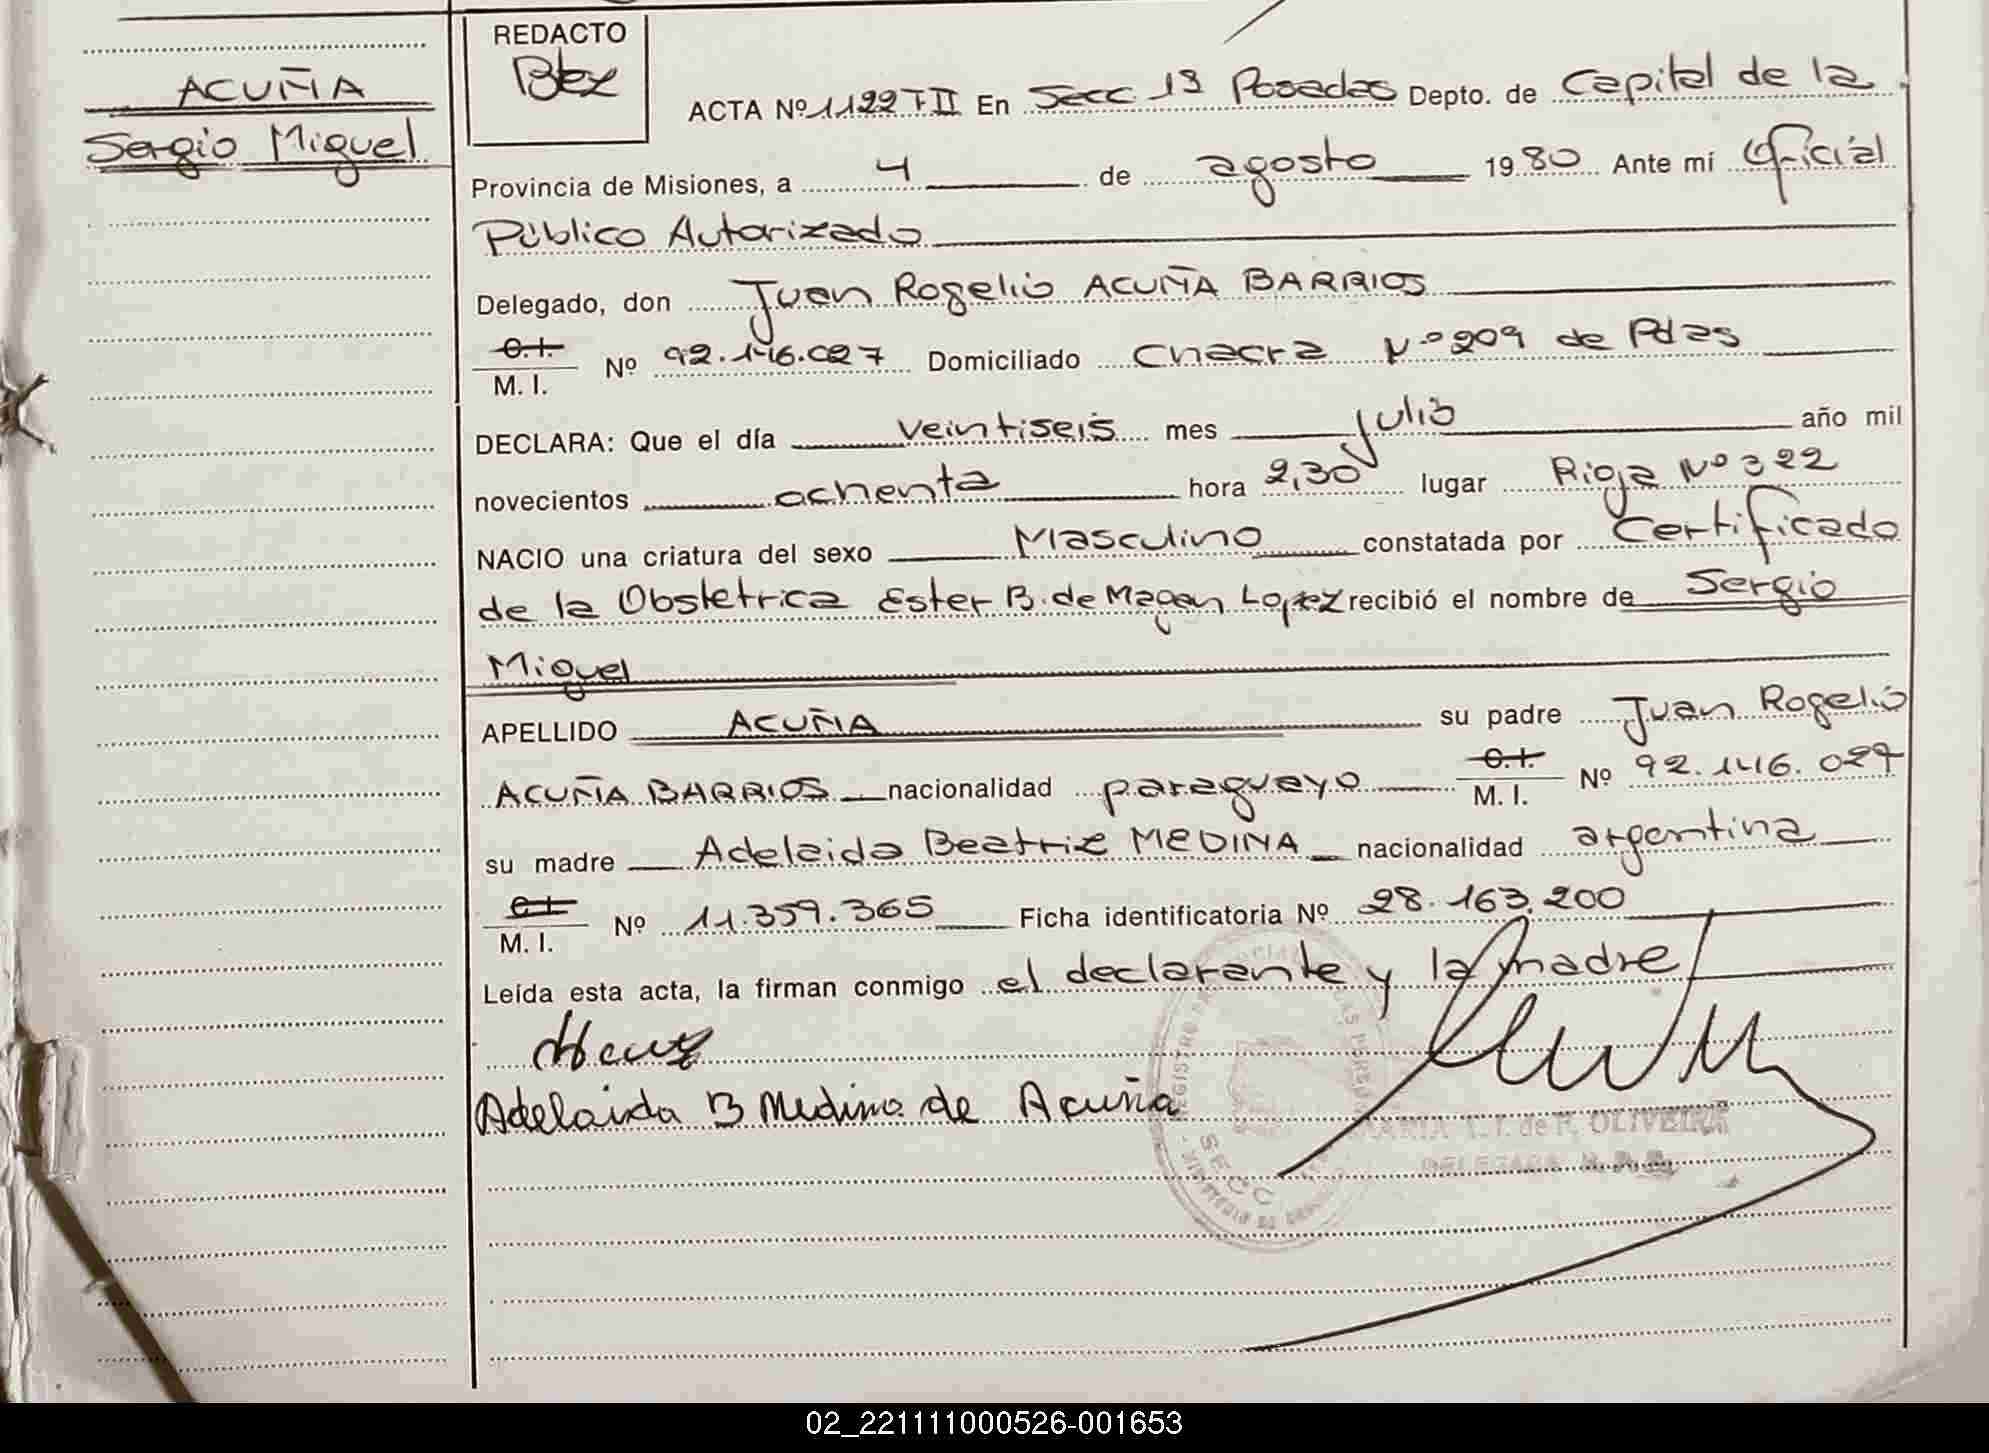 ACUÑA
Sergio Miguel
REDACTO
ACTA Nº 1122 T II En Secc 1ª Posadas Depto. de Capital de la
Provincia de Misiones, a 4 de agosto 1980 Ante mí Oficial
Público Autorizado
Delegado, don Juan Rogelio ACUÑA BARRIOS
C.I.
M. I. Nº 92.146.027 Domiciliado Chacra Nº 209 de Pdas
DECLARA: Que el día veintiseis mes julio año mil
novecientos ochenta hora 2,30 lugar Rioja Nº 322
NACIO una criatura del sexo Masculino constatada por Certificado
de la Obstetrica Ester B. de Magan Lopez recibió el nombre de Sergio
Miguel
APELLIDO ACUÑA su padre Juan Rogelio
ACUÑA BARRIOS nacionalidad paraguayo C.I. M. I. Nº 92.146.027
su madre Adelaida Beatriz MEDINA nacionalidad argentina
C.I.
M. I. Nº 11.359.365 Ficha identificatoria Nº 28.163.200
Leída esta acta, la firman conmigo el declarante y la madre
Adelaida B Medina de Acuña
OLIVEIRA
02_221111000526-001653